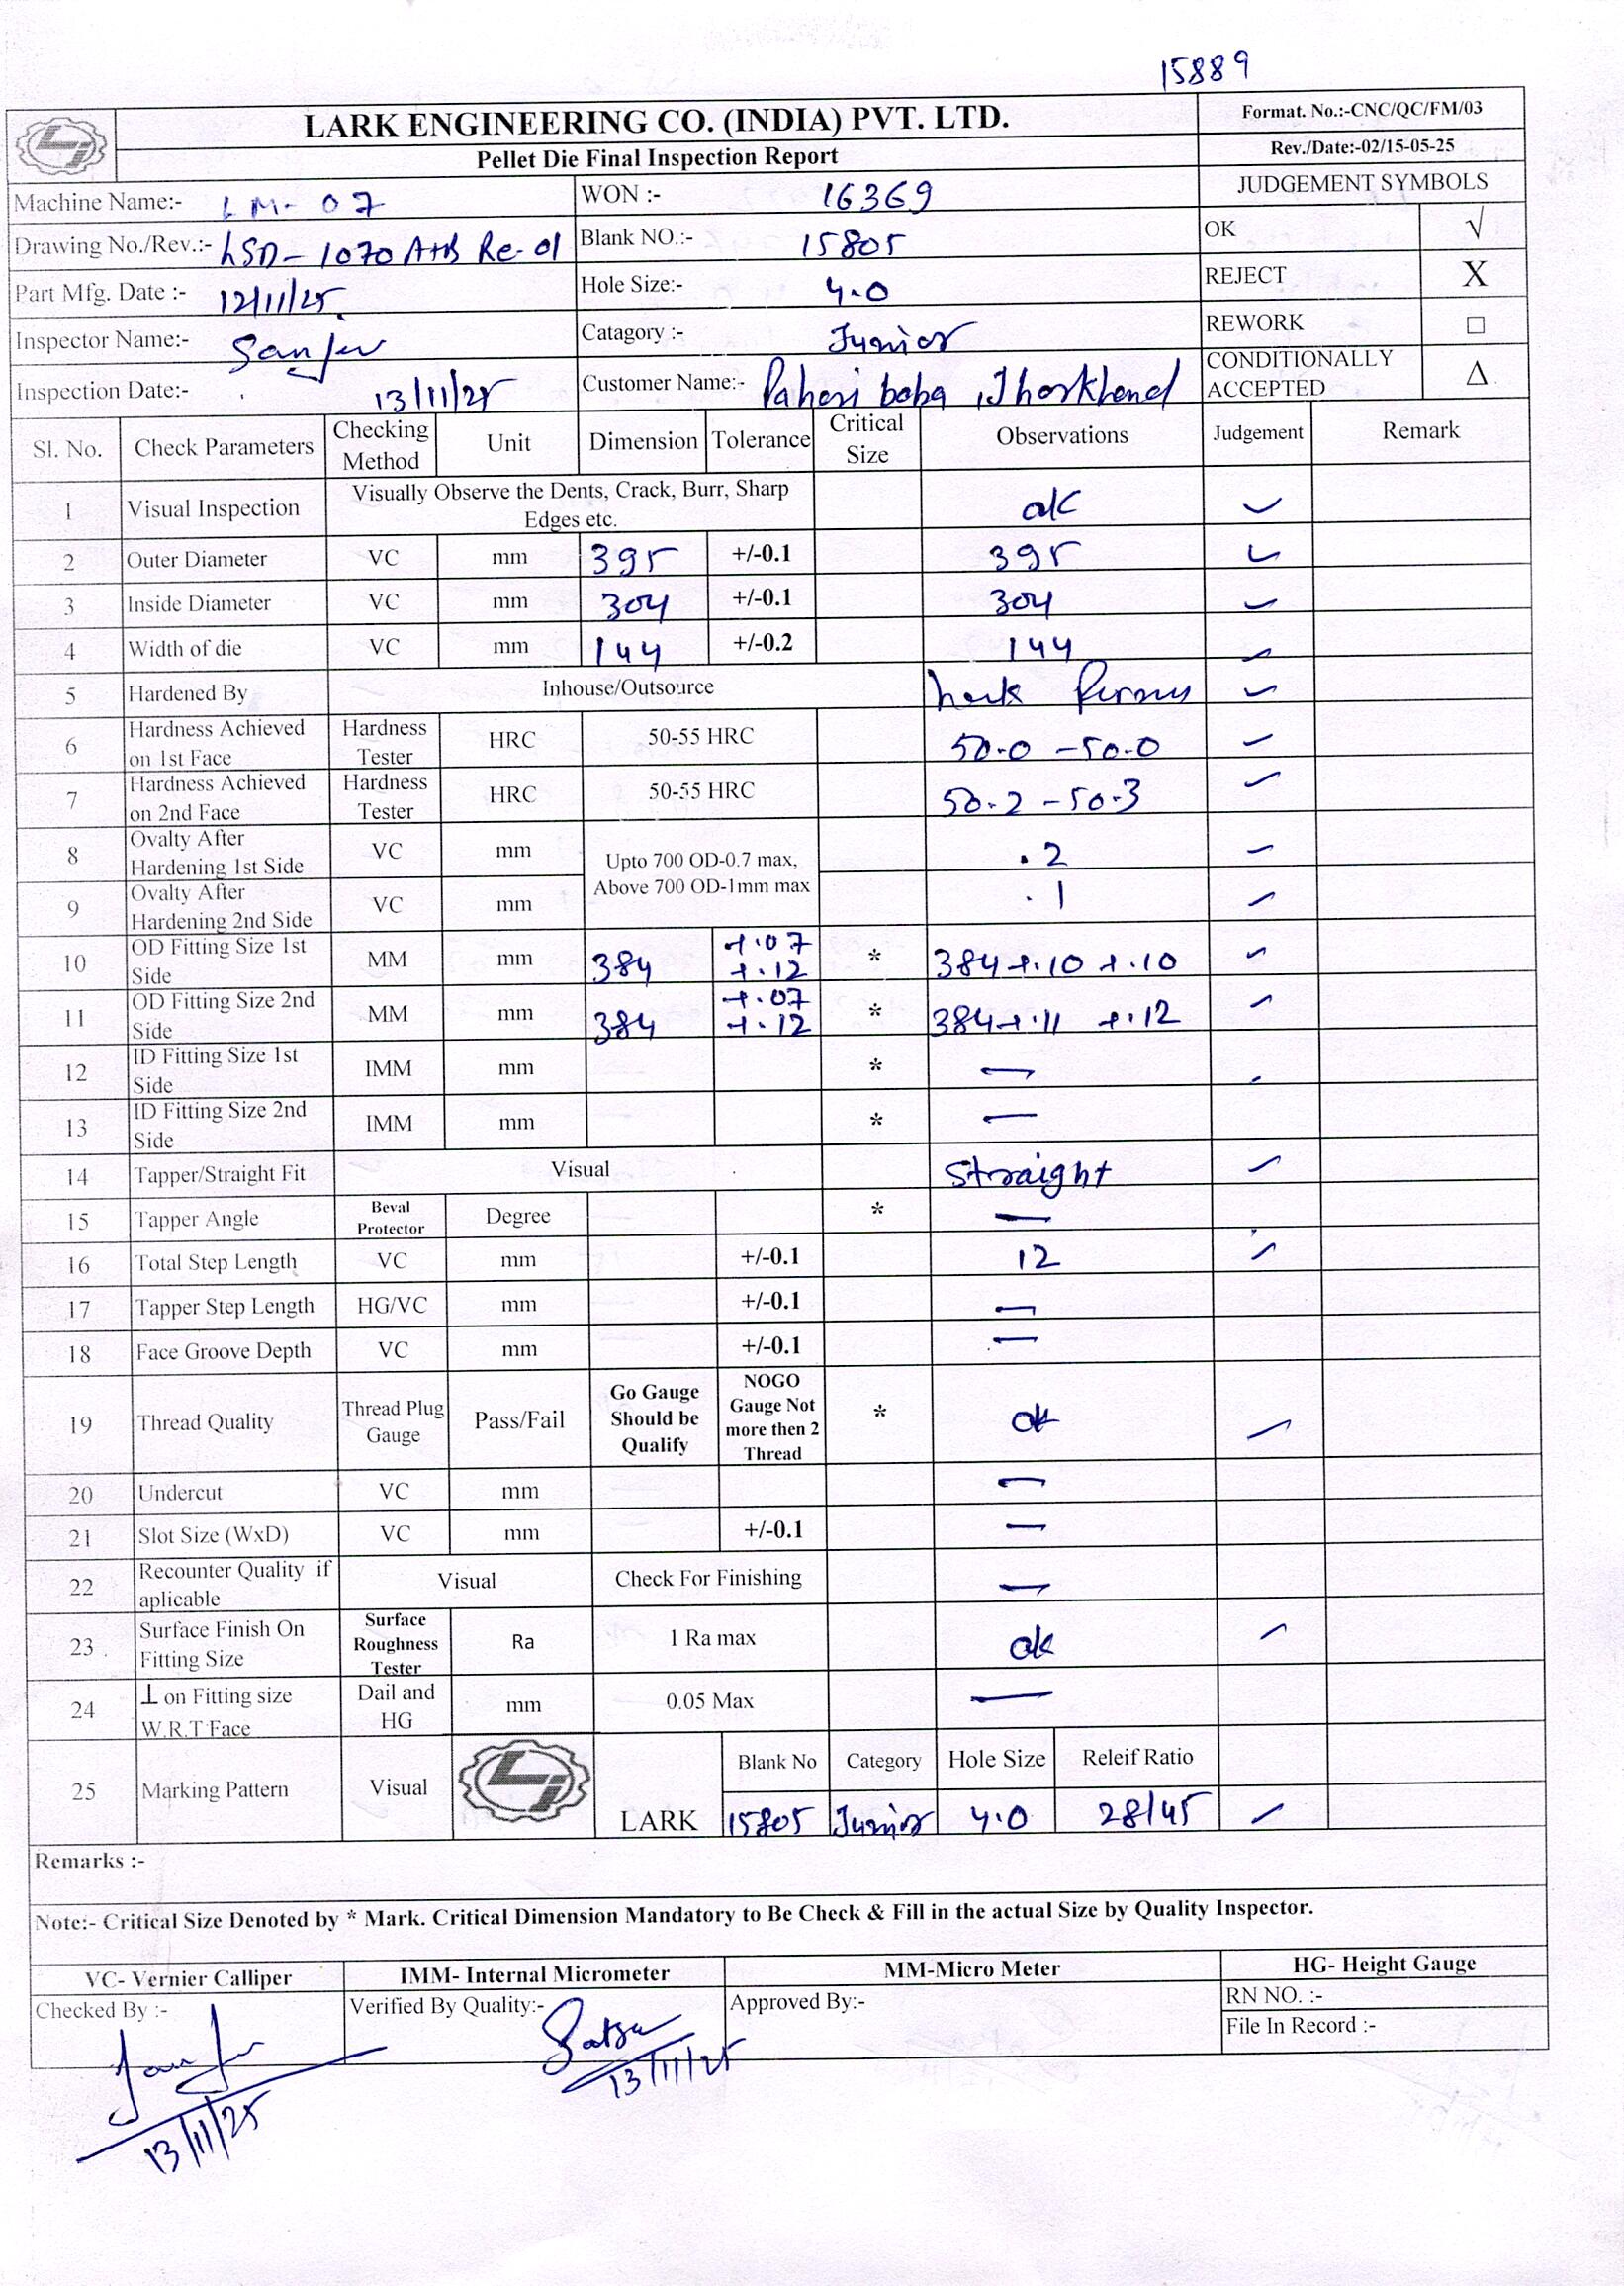 15889
LARK ENGINEERING CO. (INDIA) PVT. LTD.
Format. No.:-CNC/QC/FM/03
Pellet Die Final Inspection Report
Rev./Date:-02/15-05-25
Machine Name:- LM-07 WON :- 16369 JUDGEMENT SYMBOLS
Drawing No./Rev.:- LSD-1070 A+B Re-01 Blank NO.:- 15805 OK √
Part Mfg. Date :- 12/11/25 Hole Size:- 4.0 REJECT X
Inspector Name:- Sanjev Catagory :- Junior REWORK □
Inspection Date:- 13/11/25 Customer Name:- Pahari baba, Jharkhand CONDITIONALLY ACCEPTED Δ
Sl. No. Check Parameters Checking Method Unit Dimension Tolerance Critical Size Observations Judgement Remark
1 Visual Inspection Visually Observe the Dents, Crack, Burr, Sharp Edges etc. ok ✓
2 Outer Diameter VC mm 395 +/-0.1 395 ✓
3 Inside Diameter VC mm 304 +/-0.1 304 ✓
4 Width of die VC mm 144 +/-0.2 144 ✓
5 Hardened By Inhouse/Outsource ✓
6 Hardness Achieved on 1st Face Hardness Tester HRC 50-55 HRC 50.0 - 50.0 ✓
7 Hardness Achieved on 2nd Face Hardness Tester HRC 50-55 HRC 50.2 - 50.3 ✓
8 Ovalty After Hardening 1st Side VC mm Upto 700 OD-0.7 max, Above 700 OD-1mm max .2 ✓
9 Ovalty After Hardening 2nd Side VC mm .1 ✓
10 OD Fitting Size 1st Side MM mm 384 +.07 +.12 * 384 +.10 +.10 ✓
11 OD Fitting Size 2nd Side MM mm 384 +.07 +.12 * 384 +.11 +.12 ✓
12 ID Fitting Size 1st Side IMM mm * —
13 ID Fitting Size 2nd Side IMM mm * —
14 Tapper/Straight Fit Visual Straight ✓
15 Tapper Angle Beval Protector Degree * —
16 Total Step Length VC mm +/-0.1 12 ✓
17 Tapper Step Length HG/VC mm +/-0.1 —
18 Face Groove Depth VC mm +/-0.1 —
19 Thread Quality Thread Plug Gauge Pass/Fail Go Gauge Should be Qualify NOGO Gauge Not more then 2 Thread * ok ✓
20 Undercut VC mm —
21 Slot Size (WxD) VC mm +/-0.1 —
22 Recounter Quality if aplicable Visual Check For Finishing —
23 Surface Finish On Fitting Size Surface Roughness Tester Ra 1 Ra max ok ✓
24 ⊥ on Fitting size W.R.T Face Dail and HG mm 0.05 Max —
25 Marking Pattern Visual LARK Blank No Category Hole Size Releif Ratio
15805 Junior 4.0 28/45 ✓
Remarks :-
Note:- Critical Size Denoted by * Mark. Critical Dimension Mandatory to Be Check & Fill in the actual Size by Quality Inspector.
VC- Vernier Calliper IMM- Internal Micrometer MM-Micro Meter HG- Height Gauge
Checked By :- Verified By Quality:- Approved By:- RN NO. :-
File In Record :-
13/11/25
13/11/25